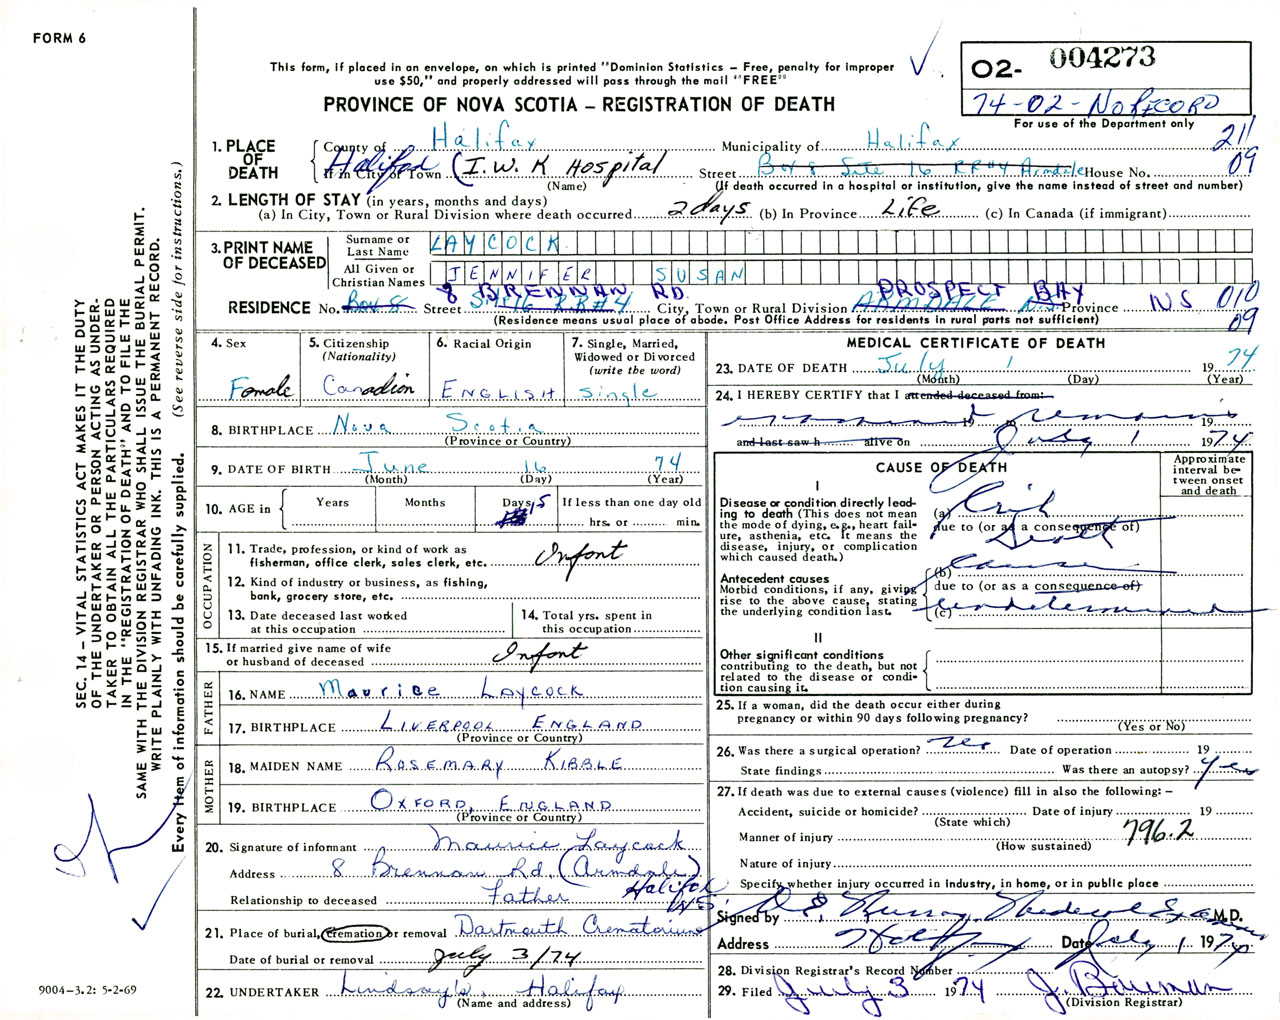 FORM 6
This form, if placed in an envelope, on which is printed "Dominion Statistics – Free, penalty for improper
use $50," and properly addressed will pass through the mail "FREE"
PROVINCE OF NOVA SCOTIA – REGISTRATION OF DEATH
O2- 004273
74-02-NO RECORD
For use of the Department only
211
09
1. PLACE OF DEATH
County of Halifax Municipality of Halifax
If in City or Town Halifax (I.W.K Hospital Street Box 8 Site 16 RR#4 Armdale House No.
(Name) (If death occurred in a hospital or institution, give the name instead of street and number)
2. LENGTH OF STAY (in years, months and days)
(a) In City, Town or Rural Division where death occurred 2 days (b) In Province Life (c) In Canada (if immigrant)
3. PRINT NAME OF DECEASED
Surname or Last Name LAYCOCK
All Given or Christian Names JENNIFER SUSAN
8 BRENNAN RD. PROSPECT BAY
RESIDENCE No. Box 8 Street SITE 16 RR#4 City, Town or Rural Division ARMDALE NS Province NS 010
09
(Residence means usual place of abode. Post Office Address for residents in rural parts not sufficient)
4. Sex
Female
5. Citizenship
(Nationality)
Canadian
6. Racial Origin
ENGLISH
7. Single, Married,
Widowed or Divorced
(write the word)
Single
8. BIRTHPLACE Nova Scotia
(Province or Country)
9. DATE OF BIRTH June 16 74
(Month) (Day) (Year)
10. AGE in Years Months Days 15 If less than one day old
hrs. or min.
OCCUPATION
11. Trade, profession, or kind of work as
fisherman, office clerk, sales clerk, etc. Infant
12. Kind of industry or business, as fishing,
bank, grocery store, etc.
13. Date deceased last worked
at this occupation
14. Total yrs. spent in
this occupation
15. If married give name of wife
or husband of deceased Infant
FATHER
16. NAME Maurice LAYCOCK
17. BIRTHPLACE LIVERPOOL ENGLAND
(Province or Country)
MOTHER
18. MAIDEN NAME ROSEMARY KIBBLE
19. BIRTHPLACE OXFORD, ENGLAND
(Province or Country)
20. Signature of informant Maurice Laycock
Address 8 Brennan Rd. (Armdale)
Halifax
NS
Relationship to deceased Father
21. Place of burial, cremation or removal Dartmouth Crematorium
Date of burial or removal July 3/74
22. UNDERTAKER Lindsay's, Halifax
(Name and address)
MEDICAL CERTIFICATE OF DEATH
23. DATE OF DEATH July 1 1974
(Month) (Day) (Year)
24. I HEREBY CERTIFY that I attended deceased from:
examined remains 19 19
and last saw h alive on July 1 1974
CAUSE OF DEATH
Approximate
interval be-
tween onset
and death
I
Disease or condition directly lead-
ing to death (This does not mean
the mode of dying, e.g., heart fail-
ure, asthenia, etc. It means the
disease, injury, or complication
which caused death.)
(a) Crib
due to (or as a consequence of)
Death
Antecedent causes
Morbid conditions, if any, giving
rise to the above cause, stating
the underlying condition last.
(b) cause
due to (or as a consequence of)
(c) undetermined
II
Other significant conditions
contributing to the death, but not
related to the disease or condi-
tion causing it.
25. If a woman, did the death occur either during
pregnancy or within 90 days following pregnancy?
(Yes or No)
26. Was there a surgical operation? Date of operation 19
State findings Was there an autopsy? Yes
27. If death was due to external causes (violence) fill in also the following: –
Accident, suicide or homicide? Date of injury 19
(State which)
796.2
Manner of injury
(How sustained)
Nature of injury
Specify whether injury occurred in industry, in home, or in public place
Signed by M.D.
Address Halifax Date July 1 1974
28. Division Registrar's Record Number
29. Filed July 3 1974 J. Bauman
(Division Registrar)
SEC. 14 – VITAL STATISTICS ACT MAKES IT THE DUTY
OF THE UNDERTAKER OR PERSON ACTING AS UNDER-
TAKER TO OBTAIN ALL THE PARTICULARS REQUIRED
IN THE "REGISTRATION OF DEATH" AND TO FILE THE
SAME WITH THE DIVISION REGISTRAR WHO SHALL ISSUE THE BURIAL PERMIT.
WRITE PLAINLY WITH UNFADING INK. THIS IS A PERMANENT RECORD.
Every item of information should be carefully supplied. (See reverse side for instructions.)
9004-3.2: 5-2-69